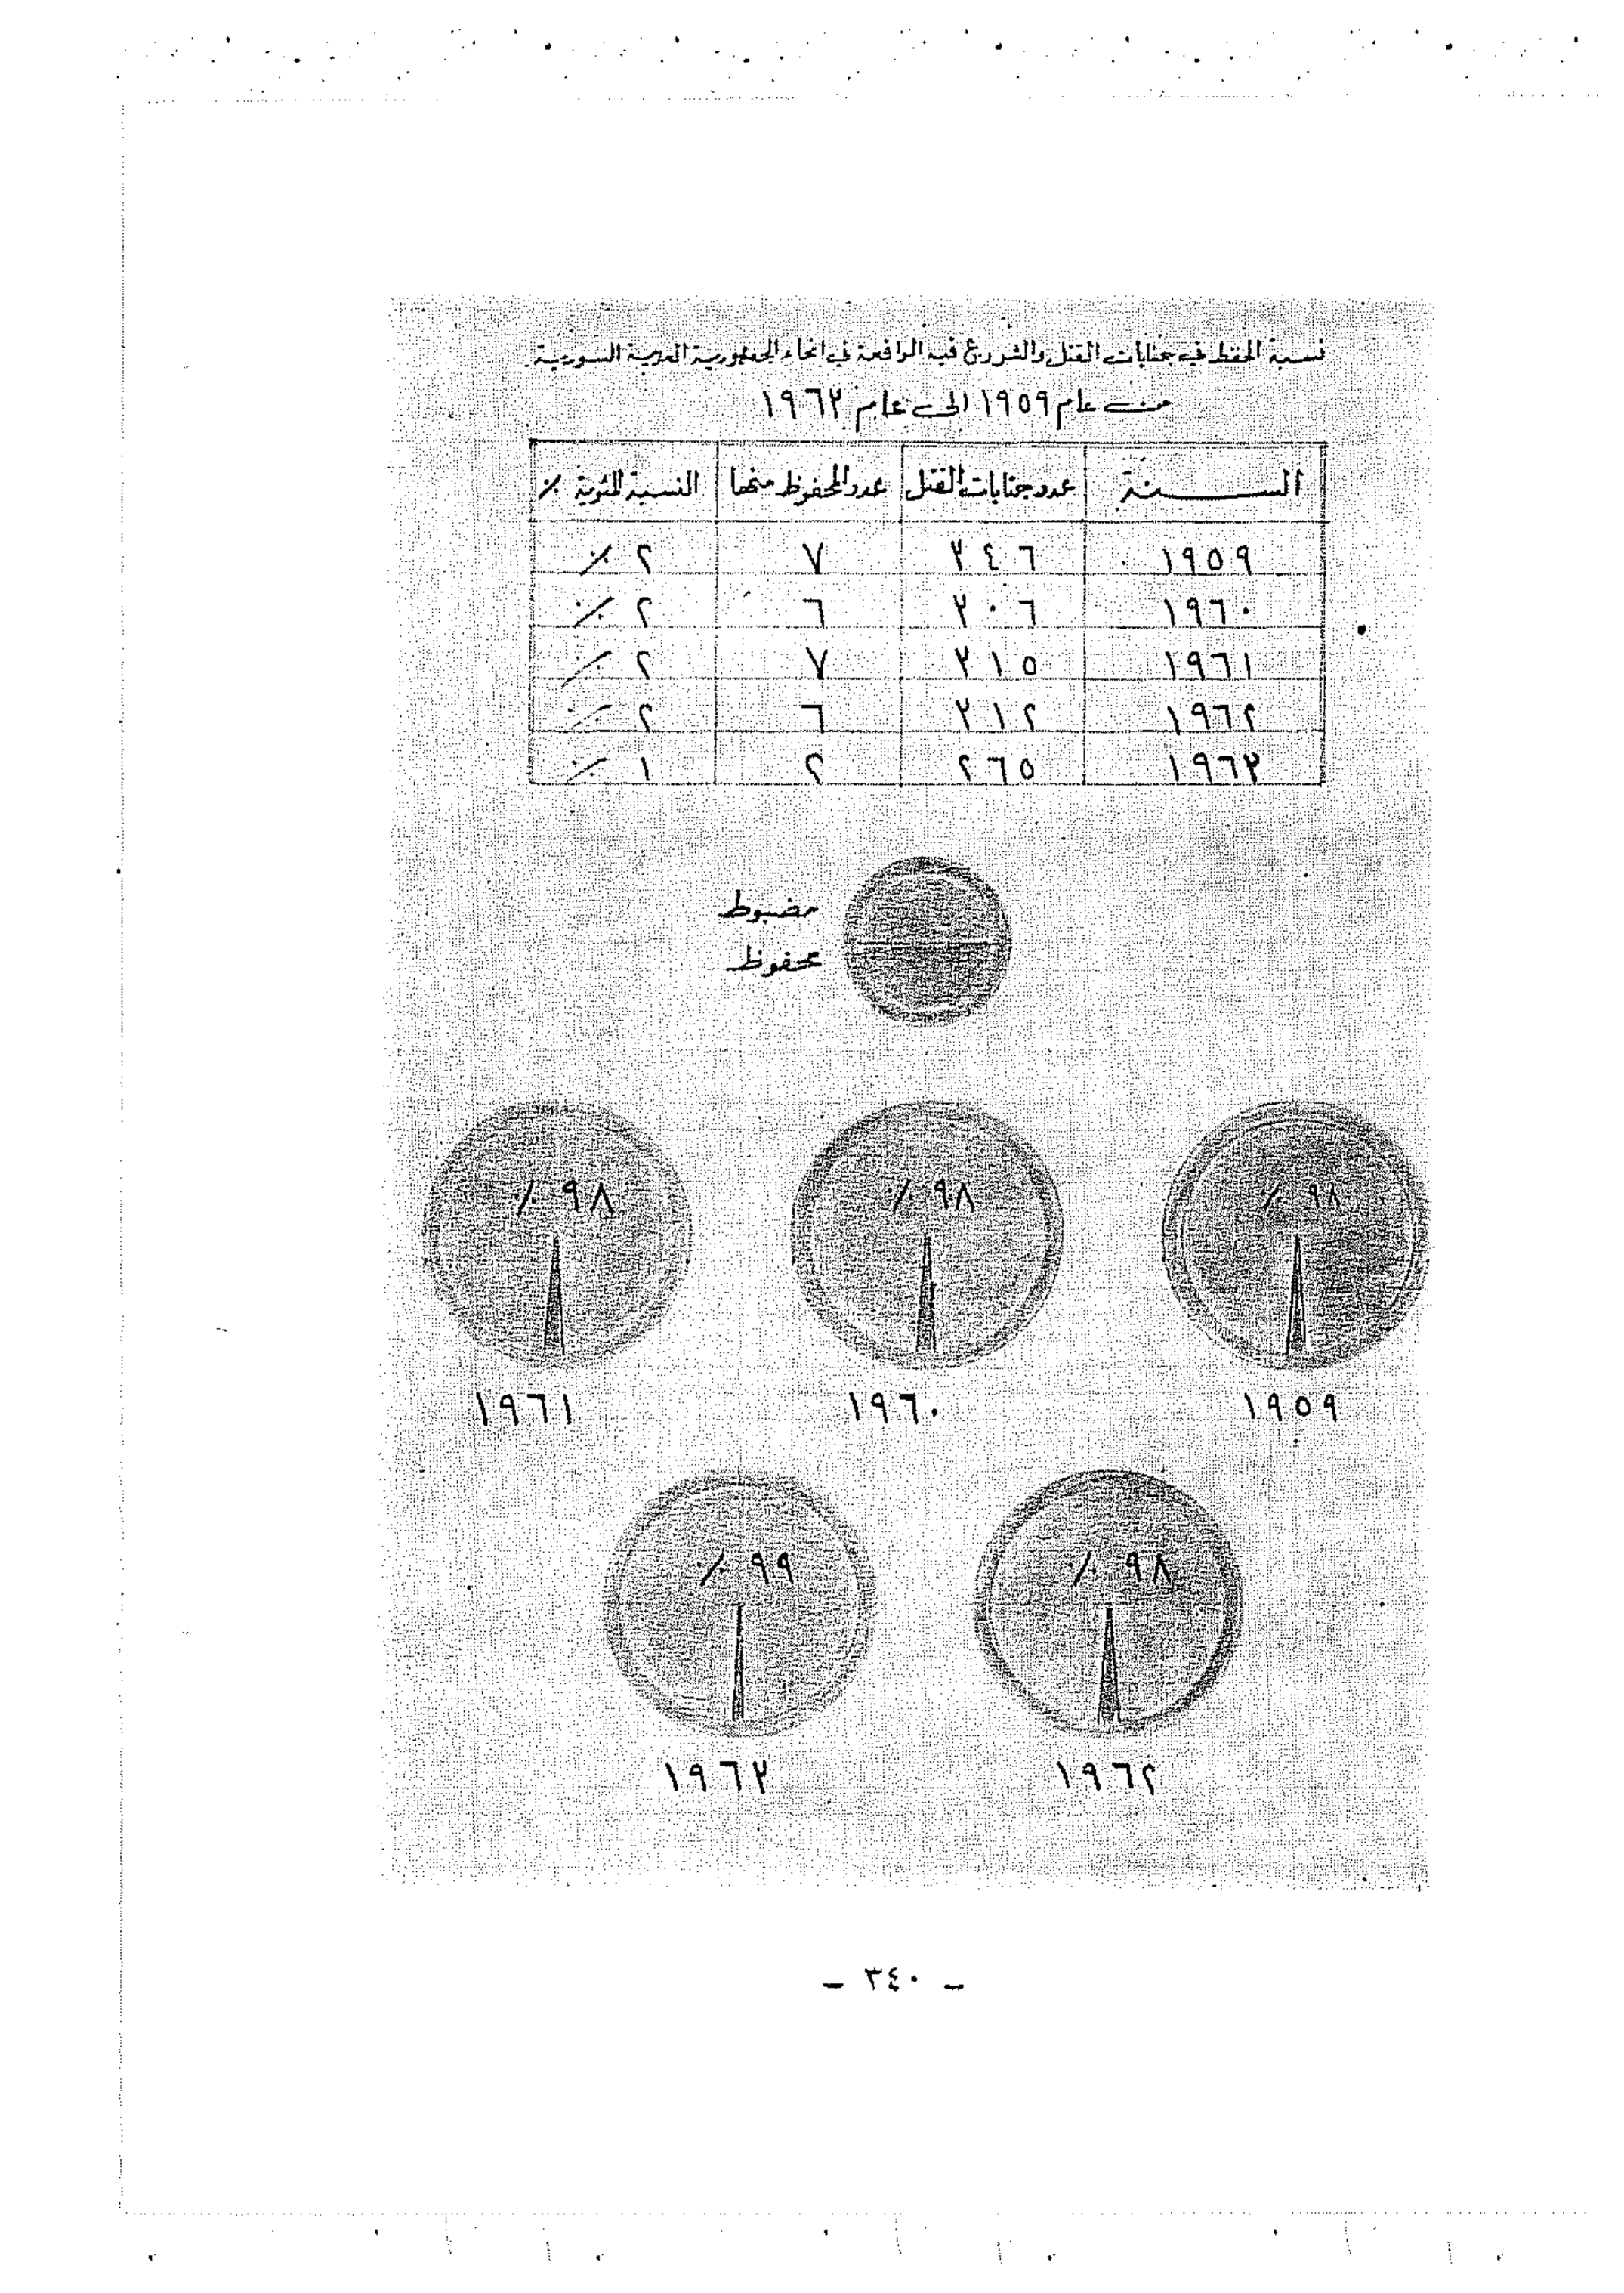 نسبة الحفظ في جنايات القتل والشروع فيه الواقعة في انحاء الجمهورية العربية السورية
من عام ١٩٥٩ الى عام ١٩٦٣
السنة عدد جنايات القتل عدد المحفوظ منها النسبة المئوية ٪
١٩٥٩ ٣٤٦ ٧ ٢ ٪
١٩٦٠ ٣٠٦ ٦ ٢ ٪
١٩٦١ ٣١٥ ٧ ٢ ٪
١٩٦٢ ٣١٢ ٦ ٢ ٪
١٩٦٣ ٢٦٥ ٢ ١ ٪
مضبوط
محفوظ
٩٨ ٪ ٩٨ ٪ ٩٨ ٪
١٩٥٩ ١٩٦٠ ١٩٦١
٩٨ ٪ ٩٩ ٪
١٩٦٢ ١٩٦٣
— ٣٤٠ —